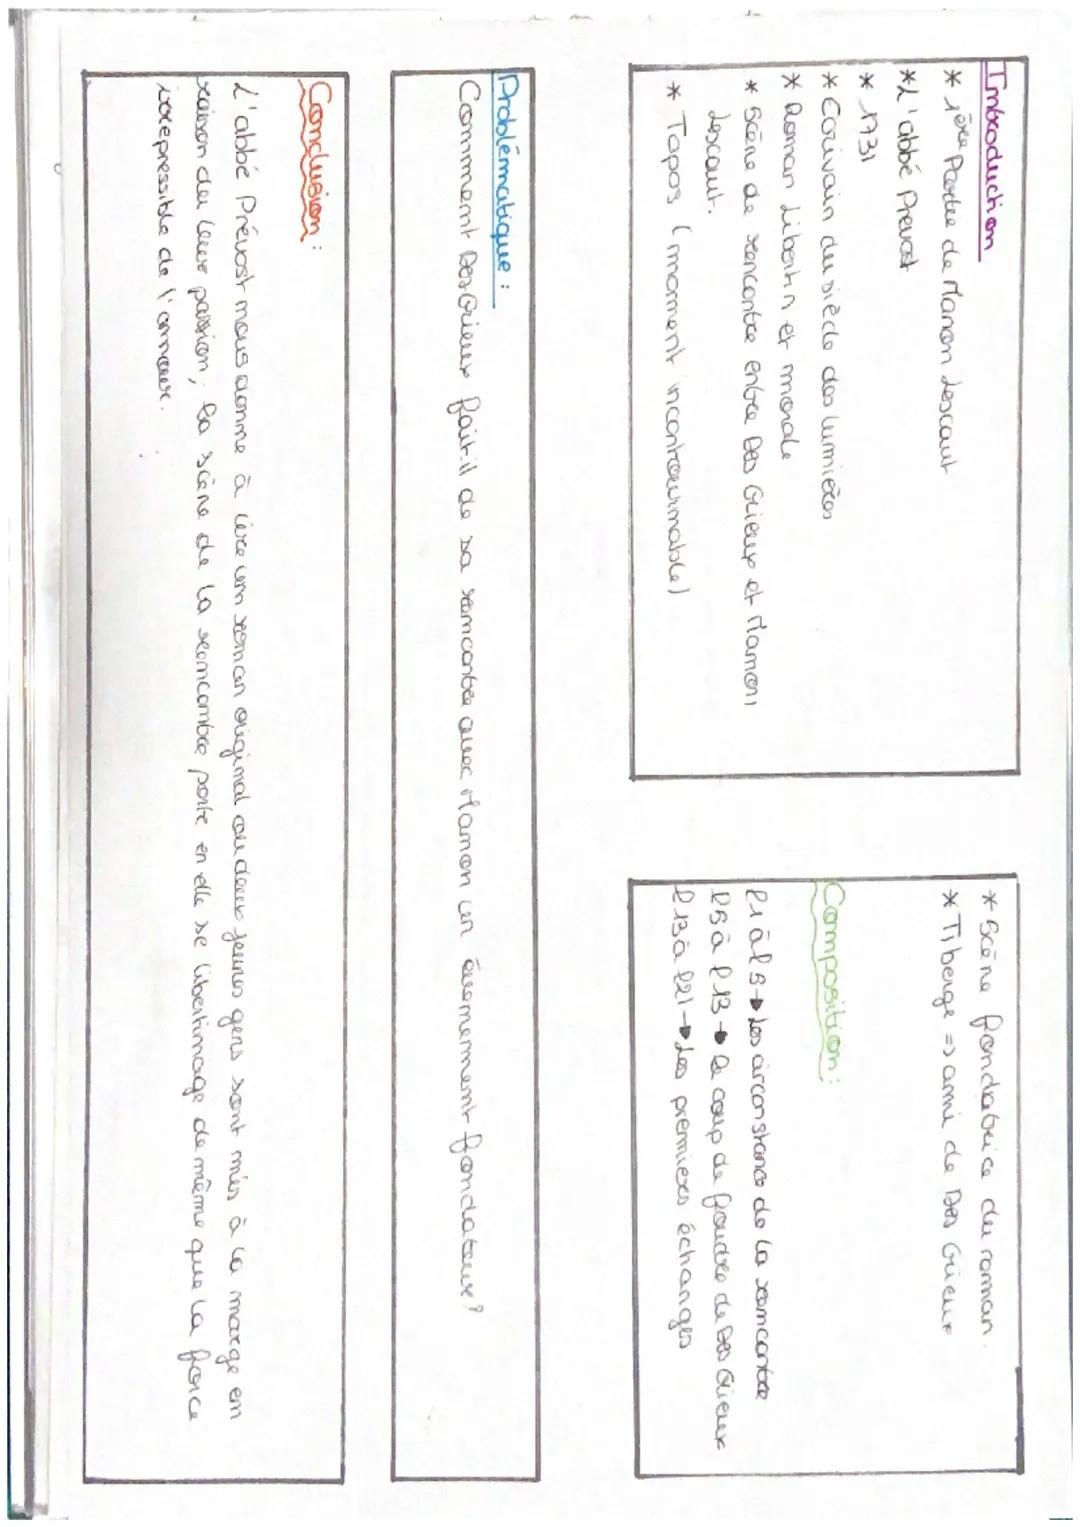 Introduction
* 1ère Partie de Manon Lescaut
* L'abbé Prevost
* 1731
* Ecrivain du siècle des lumières
* Roman Libertin et morale
* Scène de rencontre entre Des Grieux et Manon,
Lescaut.
* Tapos (moment incontournable)
* Scène fondatrice du roman.
* Tiberge => ami de Des Grieux
Composition:
l1 à l5 → Les circonstance de la rencontre
l5 à l13 → le coup de foudre de Des Grieux
l13 à l21 → Les premiers échanges
Problématique:
Comment Des Grieux fait-il de sa rencontre avec Manon un évenement fondateur?
Conclusion:
L'abbé Prévost nous donne à lire un roman original ou deux jeunes gens sont mis à la marge en
raison de leur passion; la scène de la rencontre porte en elle se libertinage de même que la force
irrepressible de l'amour.